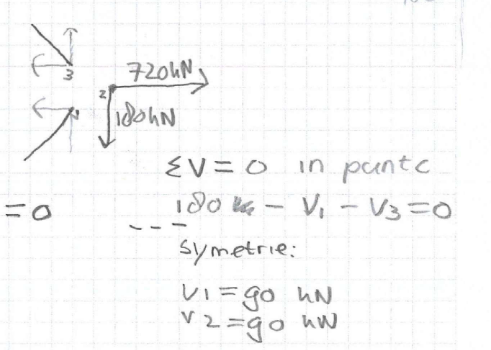 3
720kN
2
180kN
1
ΣV = 0 in punt c
= 0
180 - V₁ - V₃ = 0
Symetrie:
V₁ = 90 kN
V₂ = 90 kN